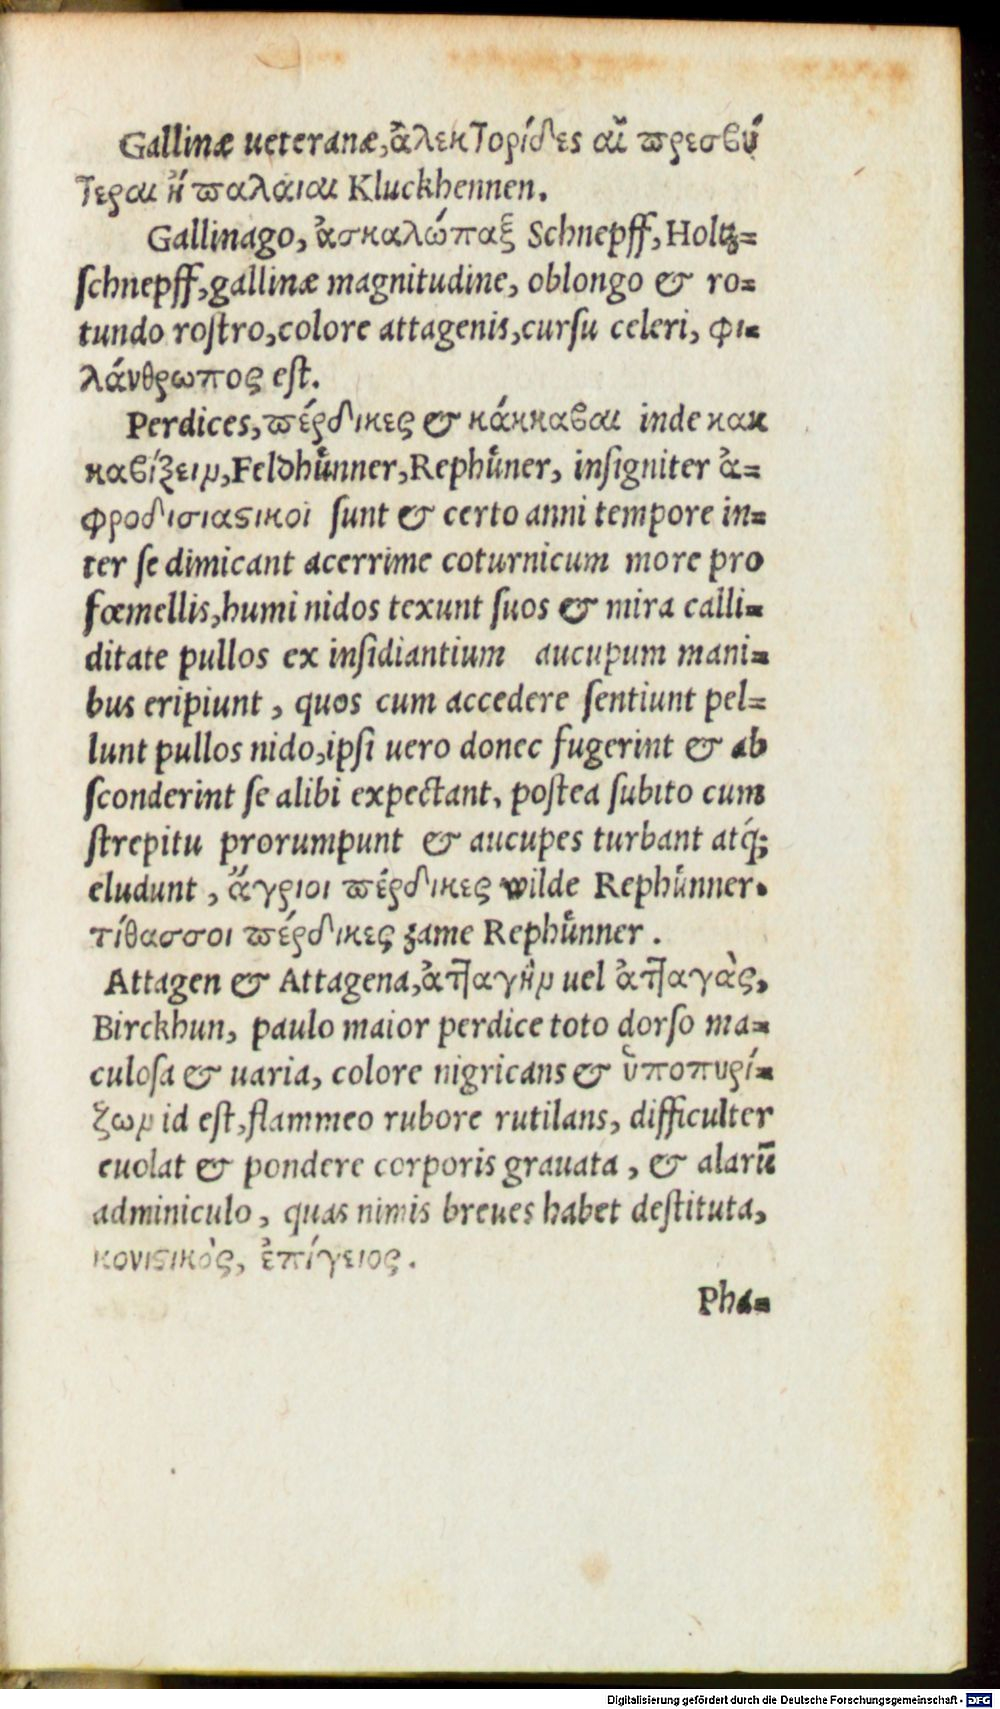 Gallinæ ueteranæ, ἀλεκτορίδες αἱ πρεσβύ
τεραι ἢ παλαιαι Kluckhennen.
Gallinago, ἀσκαλώπαξ Schnepff, Holtz=
ſchnepff, gallinæ magnitudine, oblongo & ro=
tundo roſtro, colore attagenis, curſu celeri, φι=
λάνθρωπος eſt.
Perdices, πέρδικες & κάκκαβαι inde κακ
καβίζειν, Feldhuͤnner, Rephuͤner, inſigniter ἀ=
φροδισιαϛικοὶ ſunt & certo anni tempore in=
ter ſe dimicant acerrime coturnicum more pro
fœmellis, humi nidos texunt ſuos & mira calli=
ditate pullos ex inſidiantium aucupum mani=
bus eripiunt, quos cum accedere ſentiunt pel=
lunt pullos nido, ipſi uero donec fugerint & ab
ſconderint ſe alibi expectant, poſtea ſubito cum
ſtrepitu prorumpunt & aucupes turbant atq́;
eludunt, ἄγριοι πέρδικες wilde Rephuͤnner.
τίθασσοι πέρδικες zame Rephuͤnner.
Attagen & Attagena, ἀτταγὴν uel ἀτταγὰς,
Birckhun, paulo maior perdice toto dorſo ma=
culoſa & uaria, colore nigricans & ὑποπυρί=
ζων id eſt, flammeo rubore rutilans, difficulter
euolat & pondere corporis grauata, & alarū
adminiculo, quas nimis breues habet deſtituta,
κονιϛικὸς, ἐπίγειος.
Pha=
Digitalisierung gefördert durch die Deutsche Forschungsgemeinschaft - DFG